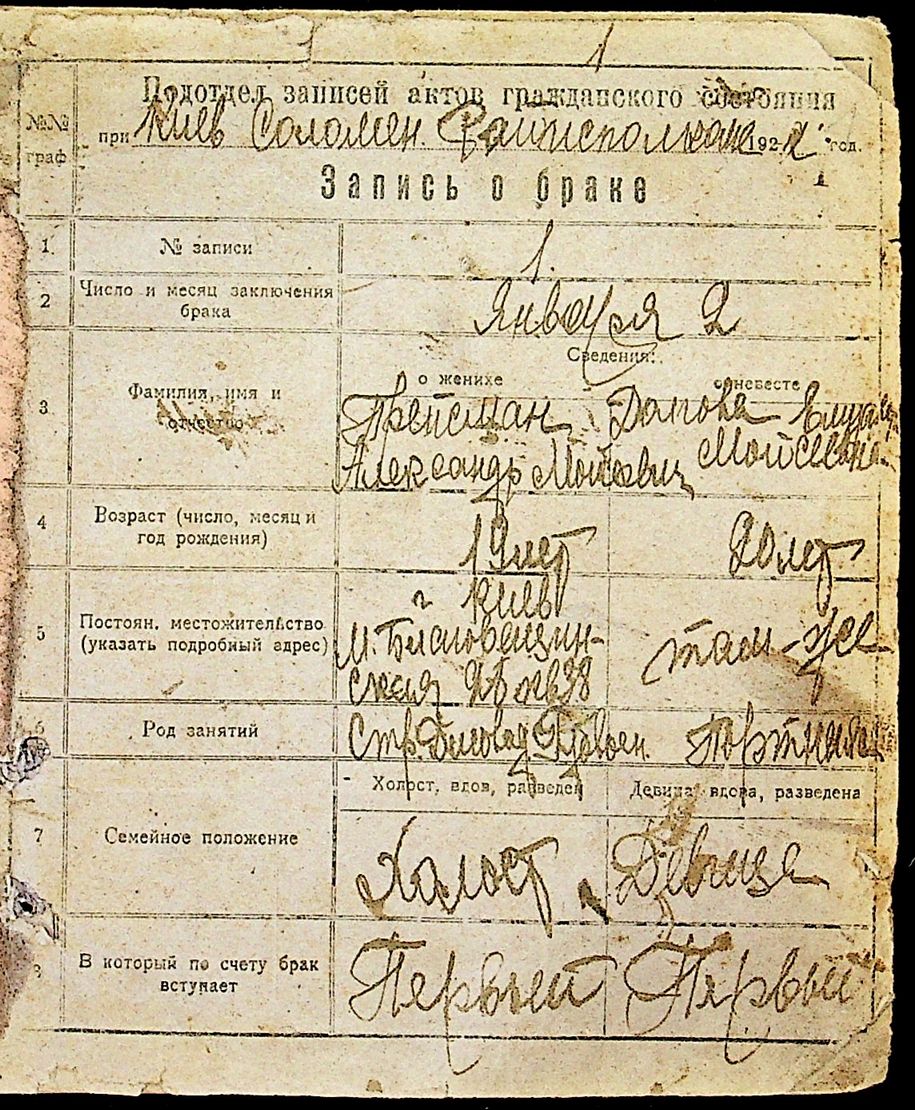 1
Подотдел записей актов гражданского состояния
№№ граф
при Киев Соломен. Райисполкоме 1922 год.
Запись о браке
1 № записи 1.
2 Число и месяц заключения
брака Января 2
Сведения:
о женихе о невесте
3 Фамилия, имя и
отчество
Александр Моисеевич Моисеевна
4 Возраст (число, месяц и
год рождения) 19 лет 20 лет
г Киев
5 Постоян. местожительство
(указать подробный адрес) М. Благовещен-
ская там-же
6 Род занятий Портниха
Холост, вдов, разведен Девица, вдова, разведена
7 Семейное положение Халост Девица
8 В который по счету брак
вступает Первый Первый